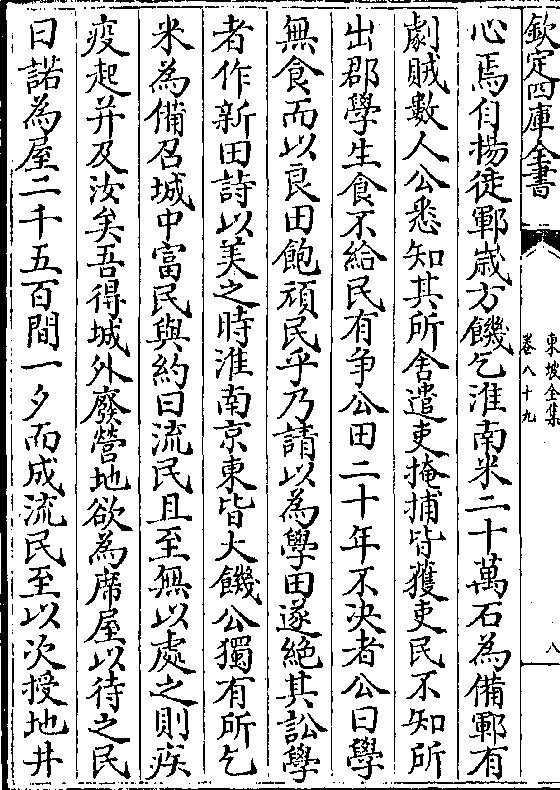 欽定四庫全書
東坡全集
卷八十九
八
心焉自揚徙鄆歳方饑乞淮南米二十萬石為備鄆有
劇賊數人公悉知其所舍遣吏掩捕皆獲吏民不知所
出郡學生食不給民有争公田二十年不决者公曰學
無食而以良田飽頑民乎乃請以為學田遂絶其訟學
者作新田詩以美之時淮南京東皆大饑公獨有所乞
米為備召城中富民與約曰流民且至無以處之則疾
疫起并及汝矣吾得城外廢營地欲為席屋以待之民
曰諾為屋二千五百間一夕而成流民至以次授地井